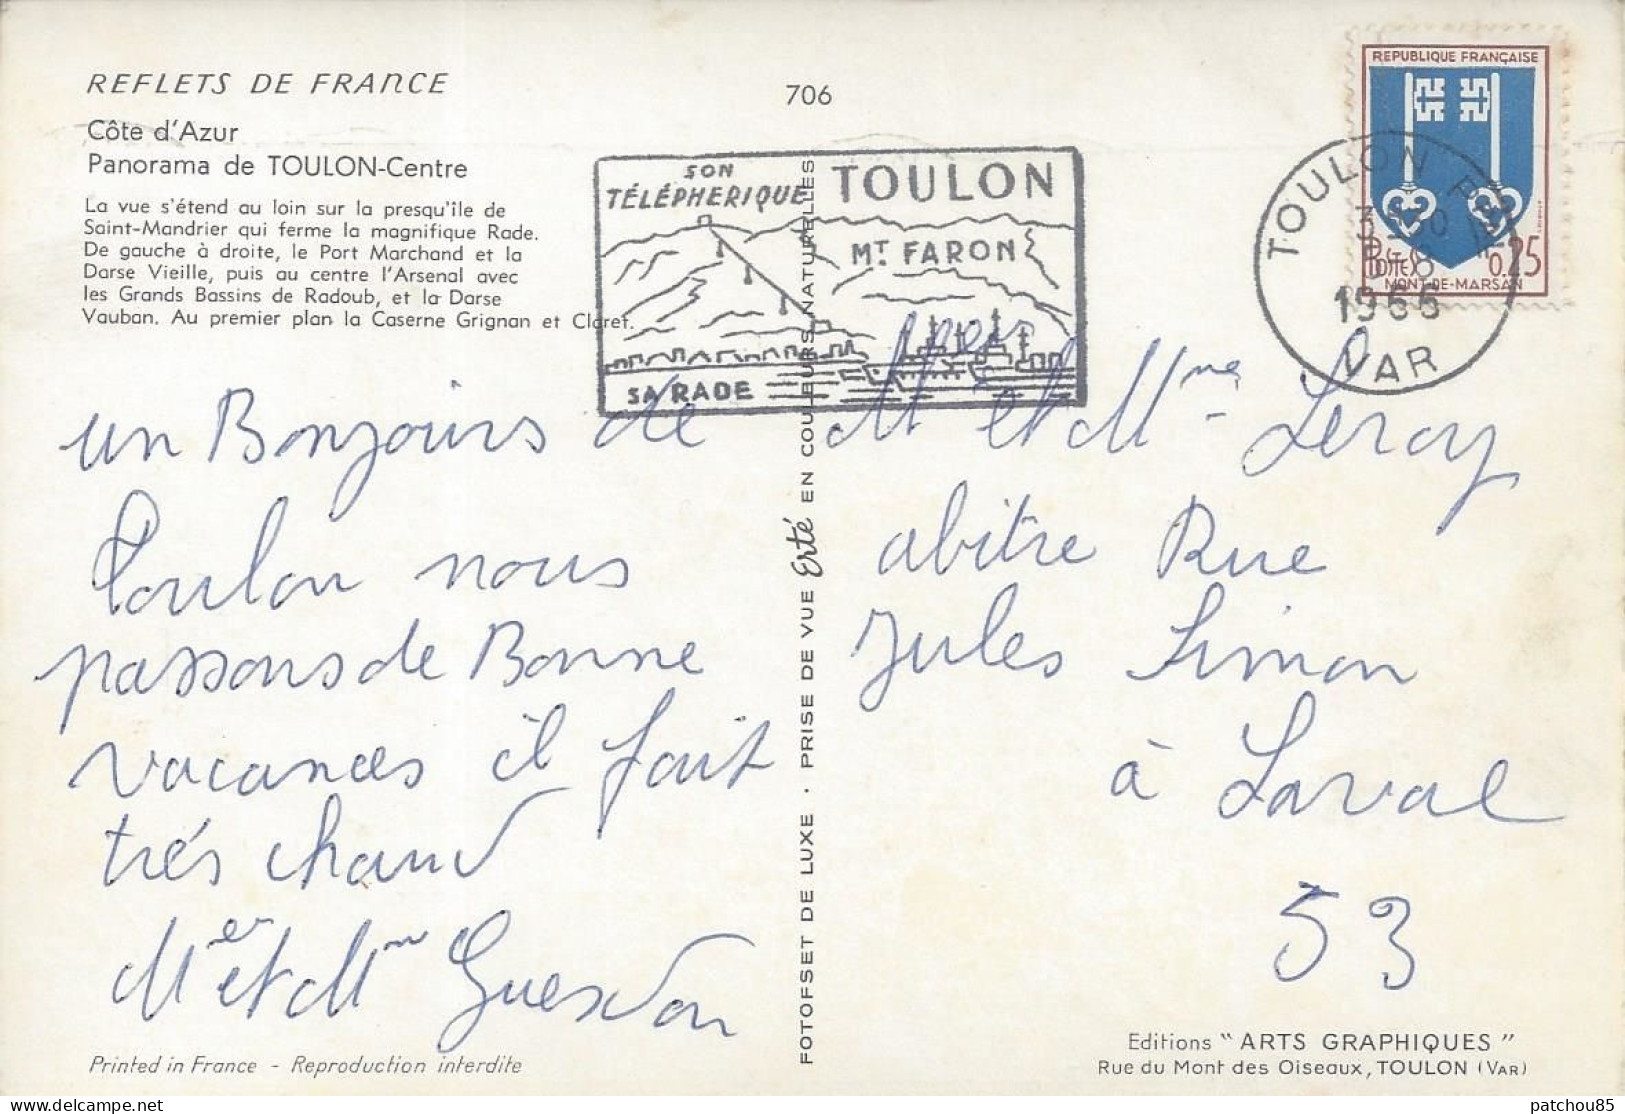 REFLETS DE FRANCE
Côte d'Azur
Panorama de TOULON-Centre
La vue s'étend au loin sur la presqu'île de
Saint-Mandrier qui ferme la magnifique Rade.
De gauche à droite, le Port Marchand et la
Darse Vieille, puis au centre l'Arsenal avec
les Grands Bassins de Radoub, et la Darse
Vauban. Au premier plan la Caserne Grignan et Claret.
706
SON
TÉLÉPHERIQUE
TOULON
MT. FARON
SA RADE
REPUBLIQUE FRANÇAISE
POSTES
0.25
MONT-DE-MARSAN
TOULON
1966
VAR
un Bonjours de
Toulon nous
passons de Bonne
vacances il fait
trés chaud
Mer et Mme Guesdon
FOTOFSET DE LUXE · PRISE DE VUE Erté EN COULEURS NATURELLES
Mer et Mme Leroy
abitre Rue
Jules Simon
à Laval
53
Printed in France - Reproduction interdite
Editions "ARTS GRAPHIQUES"
Rue du Mont des Oiseaux, TOULON (VAR)
patchou85